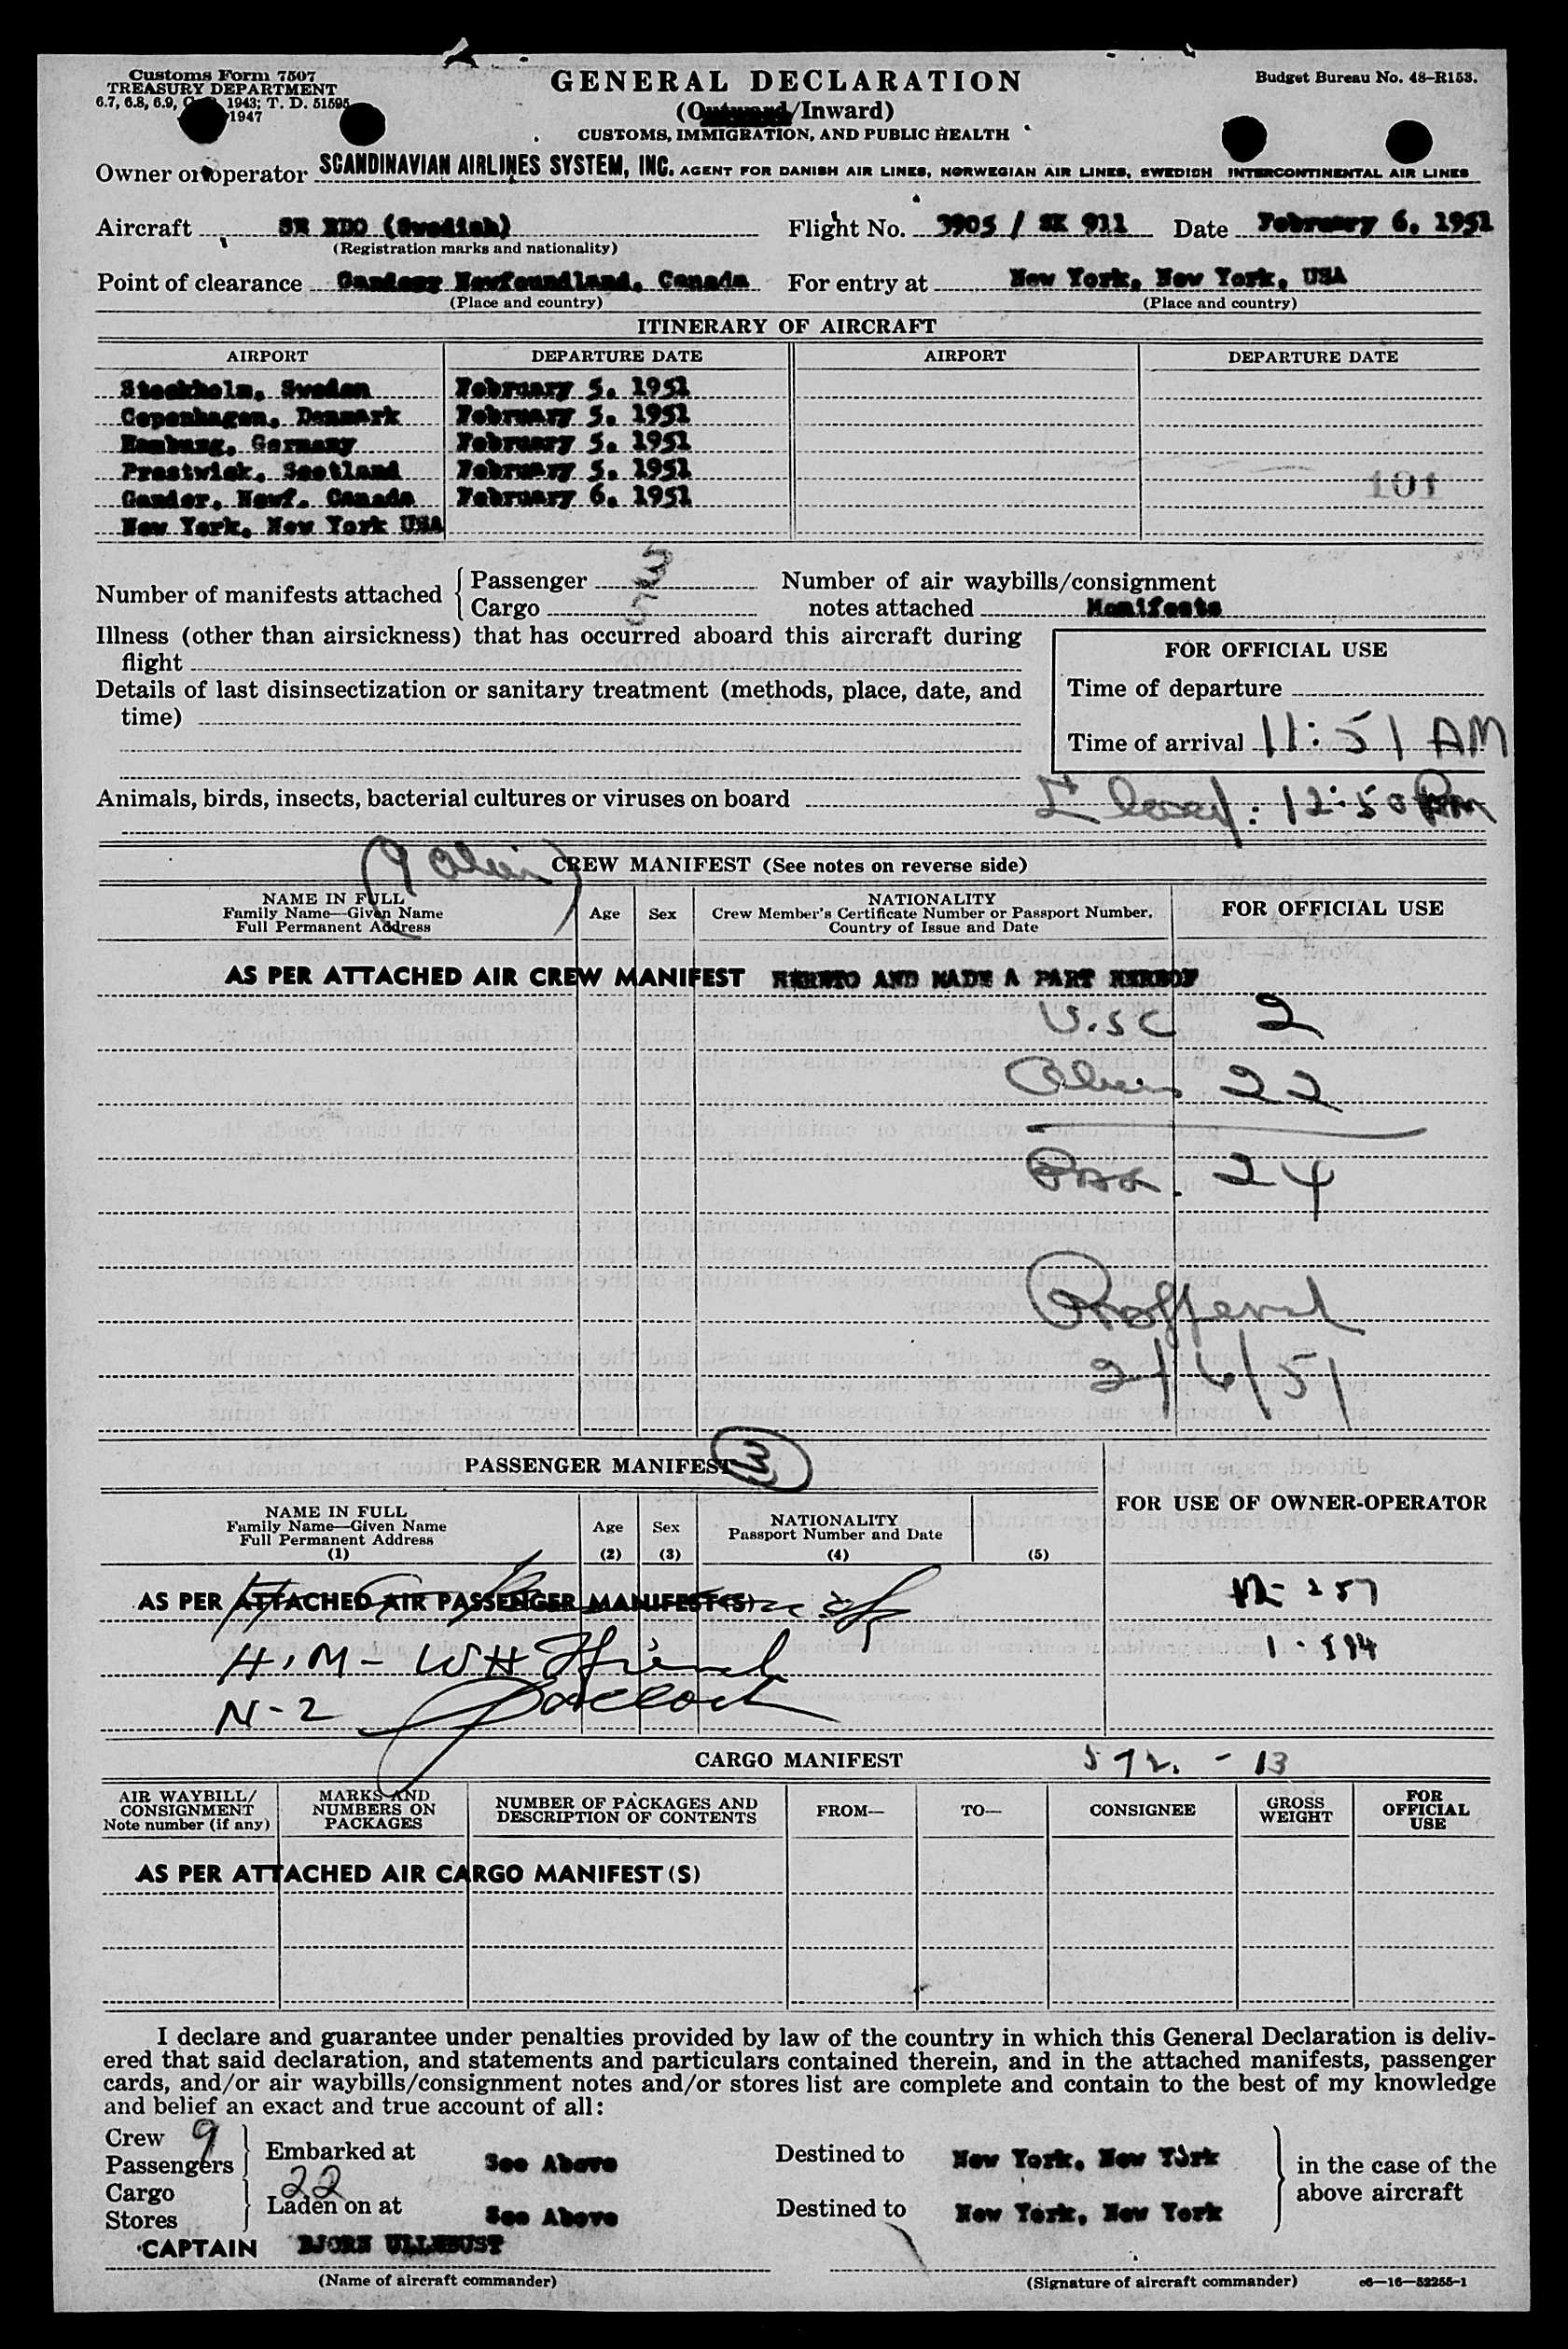 Customs Form 7507
TREASURY DEPARTMENT
6.7, 6.8, 6.9, 1943; T. D. 51595
1947
GENERAL DECLARATION
(Outward/Inward)
CUSTOMS, IMMIGRATION, AND PUBLIC HEALTH
Budget Bureau No. 48-R153.
Owner or operator SCANDINAVIAN AIRLINES SYSTEM, INC. AGENT FOR DANISH AIR LINES, NORWEGIAN AIR LINES, SWEDISH INTERCONTINENTAL AIR LINES
Aircraft SE BDO (Swedish) Flight No. 3905 / SK 911 Date February 6, 1951
(Registration marks and nationality)
Point of clearance Newfoundland, Canada For entry at New York, New York, USA
(Place and country) (Place and country)
ITINERARY OF AIRCRAFT
AIRPORT DEPARTURE DATE AIRPORT DEPARTURE DATE
Stockholm, Sweden February 5, 1951
Copenhagen, Denmark February 5, 1951
Hamburg, Germany February 5, 1951
Prestwick, Scotland February 5, 1951
101
Gander, Newf. Canada February 6, 1951
New York, New York USA
Number of manifests attached Passenger 3 Number of air waybills/consignment
Cargo 5 notes attached Manifests
Illness (other than airsickness) that has occurred aboard this aircraft during
flight
Details of last disinsectization or sanitary treatment (methods, place, date, and
time)
FOR OFFICIAL USE
Time of departure
Time of arrival 11:51 AM
Animals, birds, insects, bacterial cultures or viruses on board
: 12:50 PM
(9 alien)
CREW MANIFEST (See notes on reverse side)
NAME IN FULL
Family Name—Given Name
Full Permanent Address
Age Sex
NATIONALITY
Crew Member's Certificate Number or Passport Number,
Country of Issue and Date
FOR OFFICIAL USE
AS PER ATTACHED AIR CREW MANIFEST HERETO AND MADE A PART HEREOF
U.S.C 2
Aliens 22
Pass. 24
2/6/51
PASSENGER MANIFEST 3
NAME IN FULL
Family Name—Given Name
Full Permanent Address
(1)
Age
(2)
Sex
(3)
NATIONALITY
Passport Number and Date
(4) (5)
FOR USE OF OWNER-OPERATOR
AS PER ATTACHED AIR PASSENGER MANIFEST(S)
H.M- WH
N-2
CARGO MANIFEST
AIR WAYBILL/
CONSIGNMENT
Note number (if any)
MARKS AND
NUMBERS ON
PACKAGES
NUMBER OF PACKAGES AND
DESCRIPTION OF CONTENTS
FROM—
TO—
CONSIGNEE
GROSS
WEIGHT
FOR
OFFICIAL
USE
AS PER ATTACHED AIR CARGO MANIFEST(S)
I declare and guarantee under penalties provided by law of the country in which this General Declaration is deliv-
ered that said declaration, and statements and particulars contained therein, and in the attached manifests, passenger
cards, and/or air waybills/consignment notes and/or stores list are complete and contain to the best of my knowledge
and belief an exact and true account of all:
Crew 9
Passengers 22
Embarked at See Above Destined to New York, New York
in the case of the
above aircraft
Cargo
Stores
Laden on at See Above Destined to New York, New York
CAPTAIN BJORN ULLEBUST
(Name of aircraft commander) (Signature of aircraft commander) c6—16—52255-1